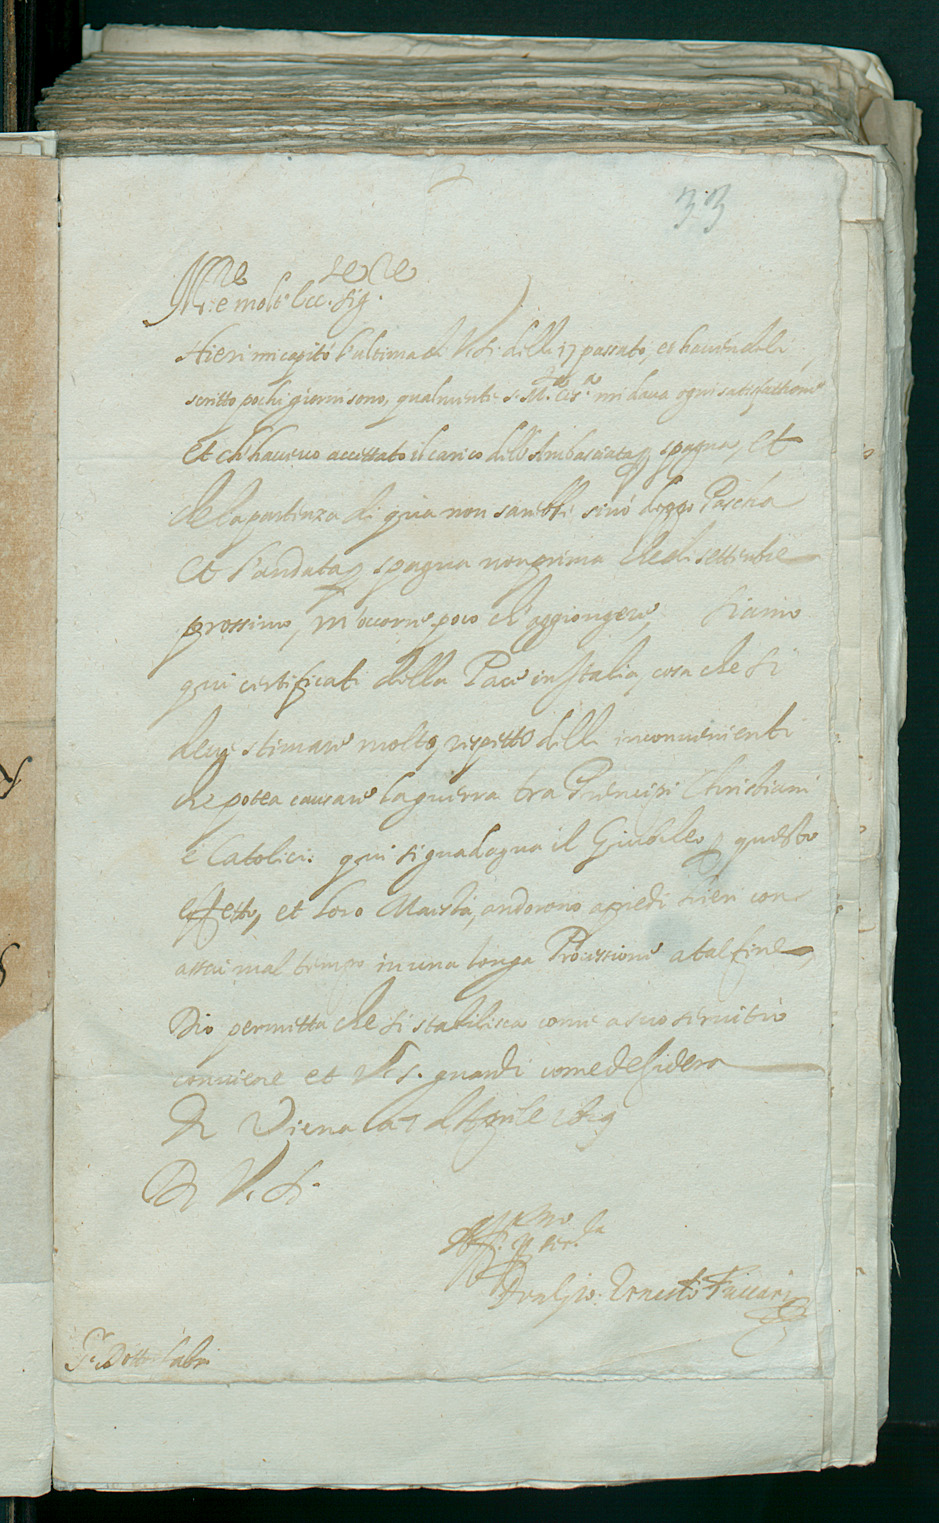 33
Ill.re e molto Ecc.te Sig.re
Hieri mi capitò l'ultima di V.S. delli 17 passato, et havendoli
scritto pochi giorni sono, qualmente S. M.tà Ces.a mi dava ogni satisfathione
et ch'havevo accettato il carico dell'Ambasciata p spagna, et
che la partenza di qua non sarebbe sinò doppo Pascha
et l'andata p spagna non prima che di settembre
prossimo, m'occorre poco ch'aggiongere, Siamo
qui certificati della Pace in Italia, cosa che si
deve stimare molto, rispetto delli inconvenienti
che potea causare la guerra tra Prencipi Christiani
e Catolici: qui si guadagna il Giubileo p questo
effetto, et loro Maestà, andorono a piedi hieri con
assai mal tempo in una longa Processione a tal fine
Dio permetta che si stabilisca come a suo servitio
conviene et V.S. guardi come desidero
Di Viena la 7 d'Aprile 1629
Di V.S.
Aff.mo p ser.la
Don Gio: Ernesto Fuccari
S.r Dott.